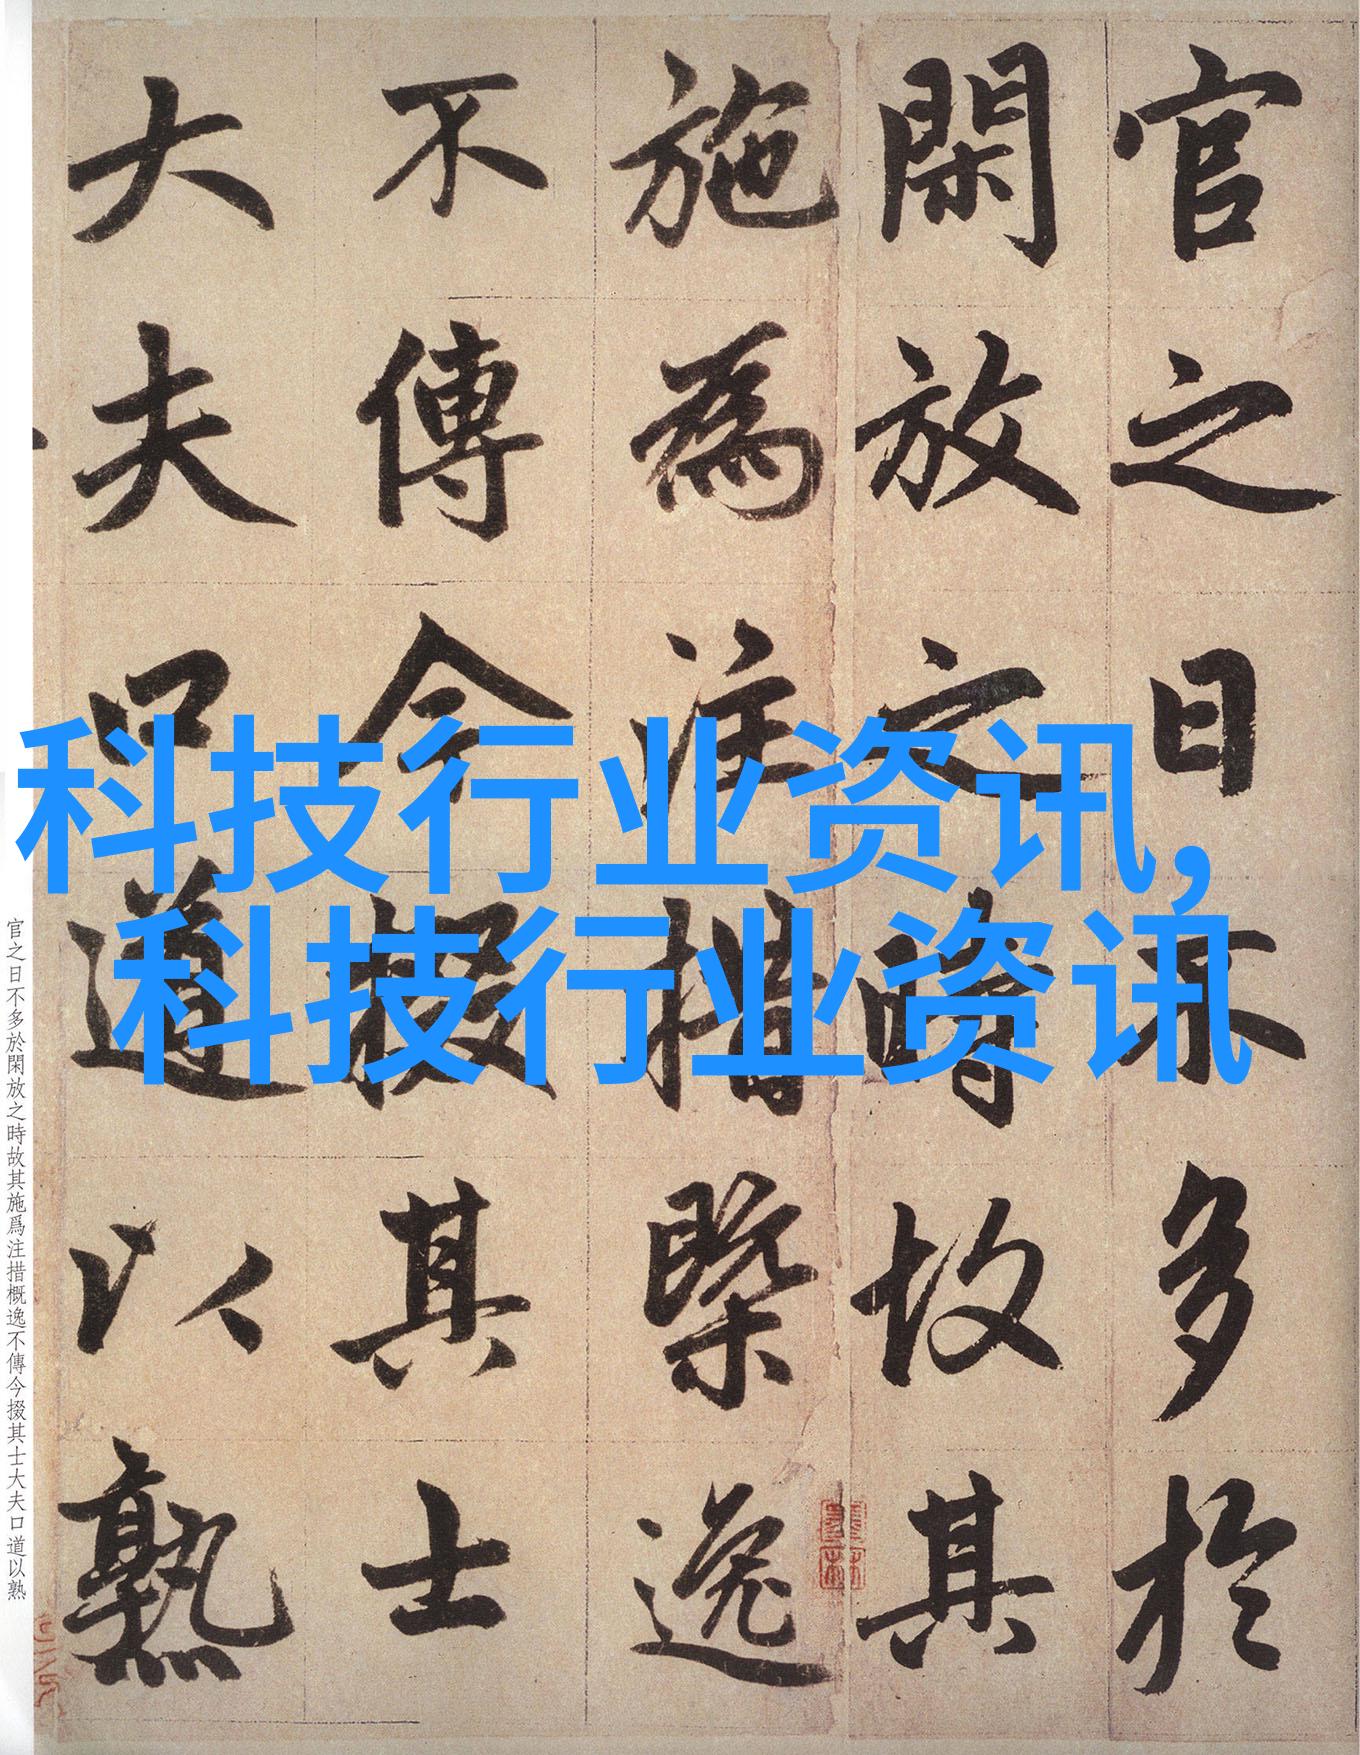 官之日不多於
閑放之時故其
施為注措槩逸
不傳今掇其士
大夫口道以熟
科技行业资讯,
科技行业资讯
官之日不多於閑放之時故其施爲注措概逸不傳今掇其士大夫口道以熟